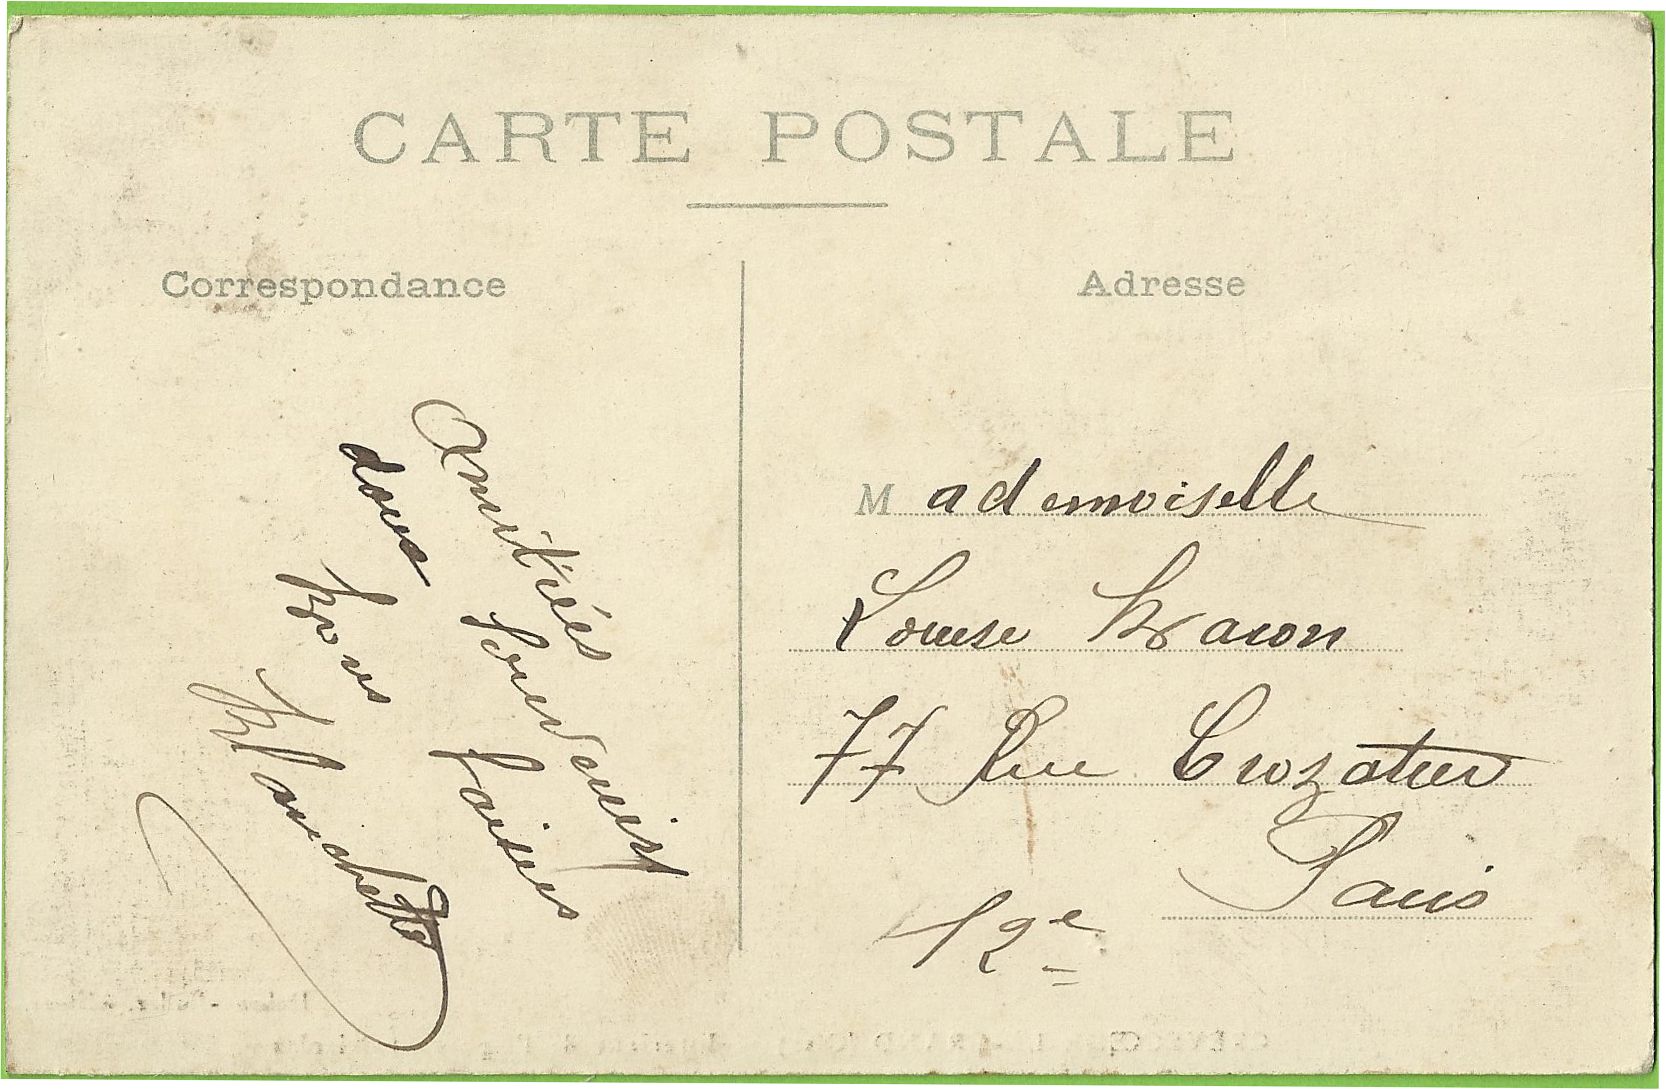 CARTE POSTALE
Correspondance
Amitiés
doux Souvenirs
Bons baisers
Blanchette
Adresse
Mademoiselle
Louise Baron
77 Rue Crozatier
Paris
12e